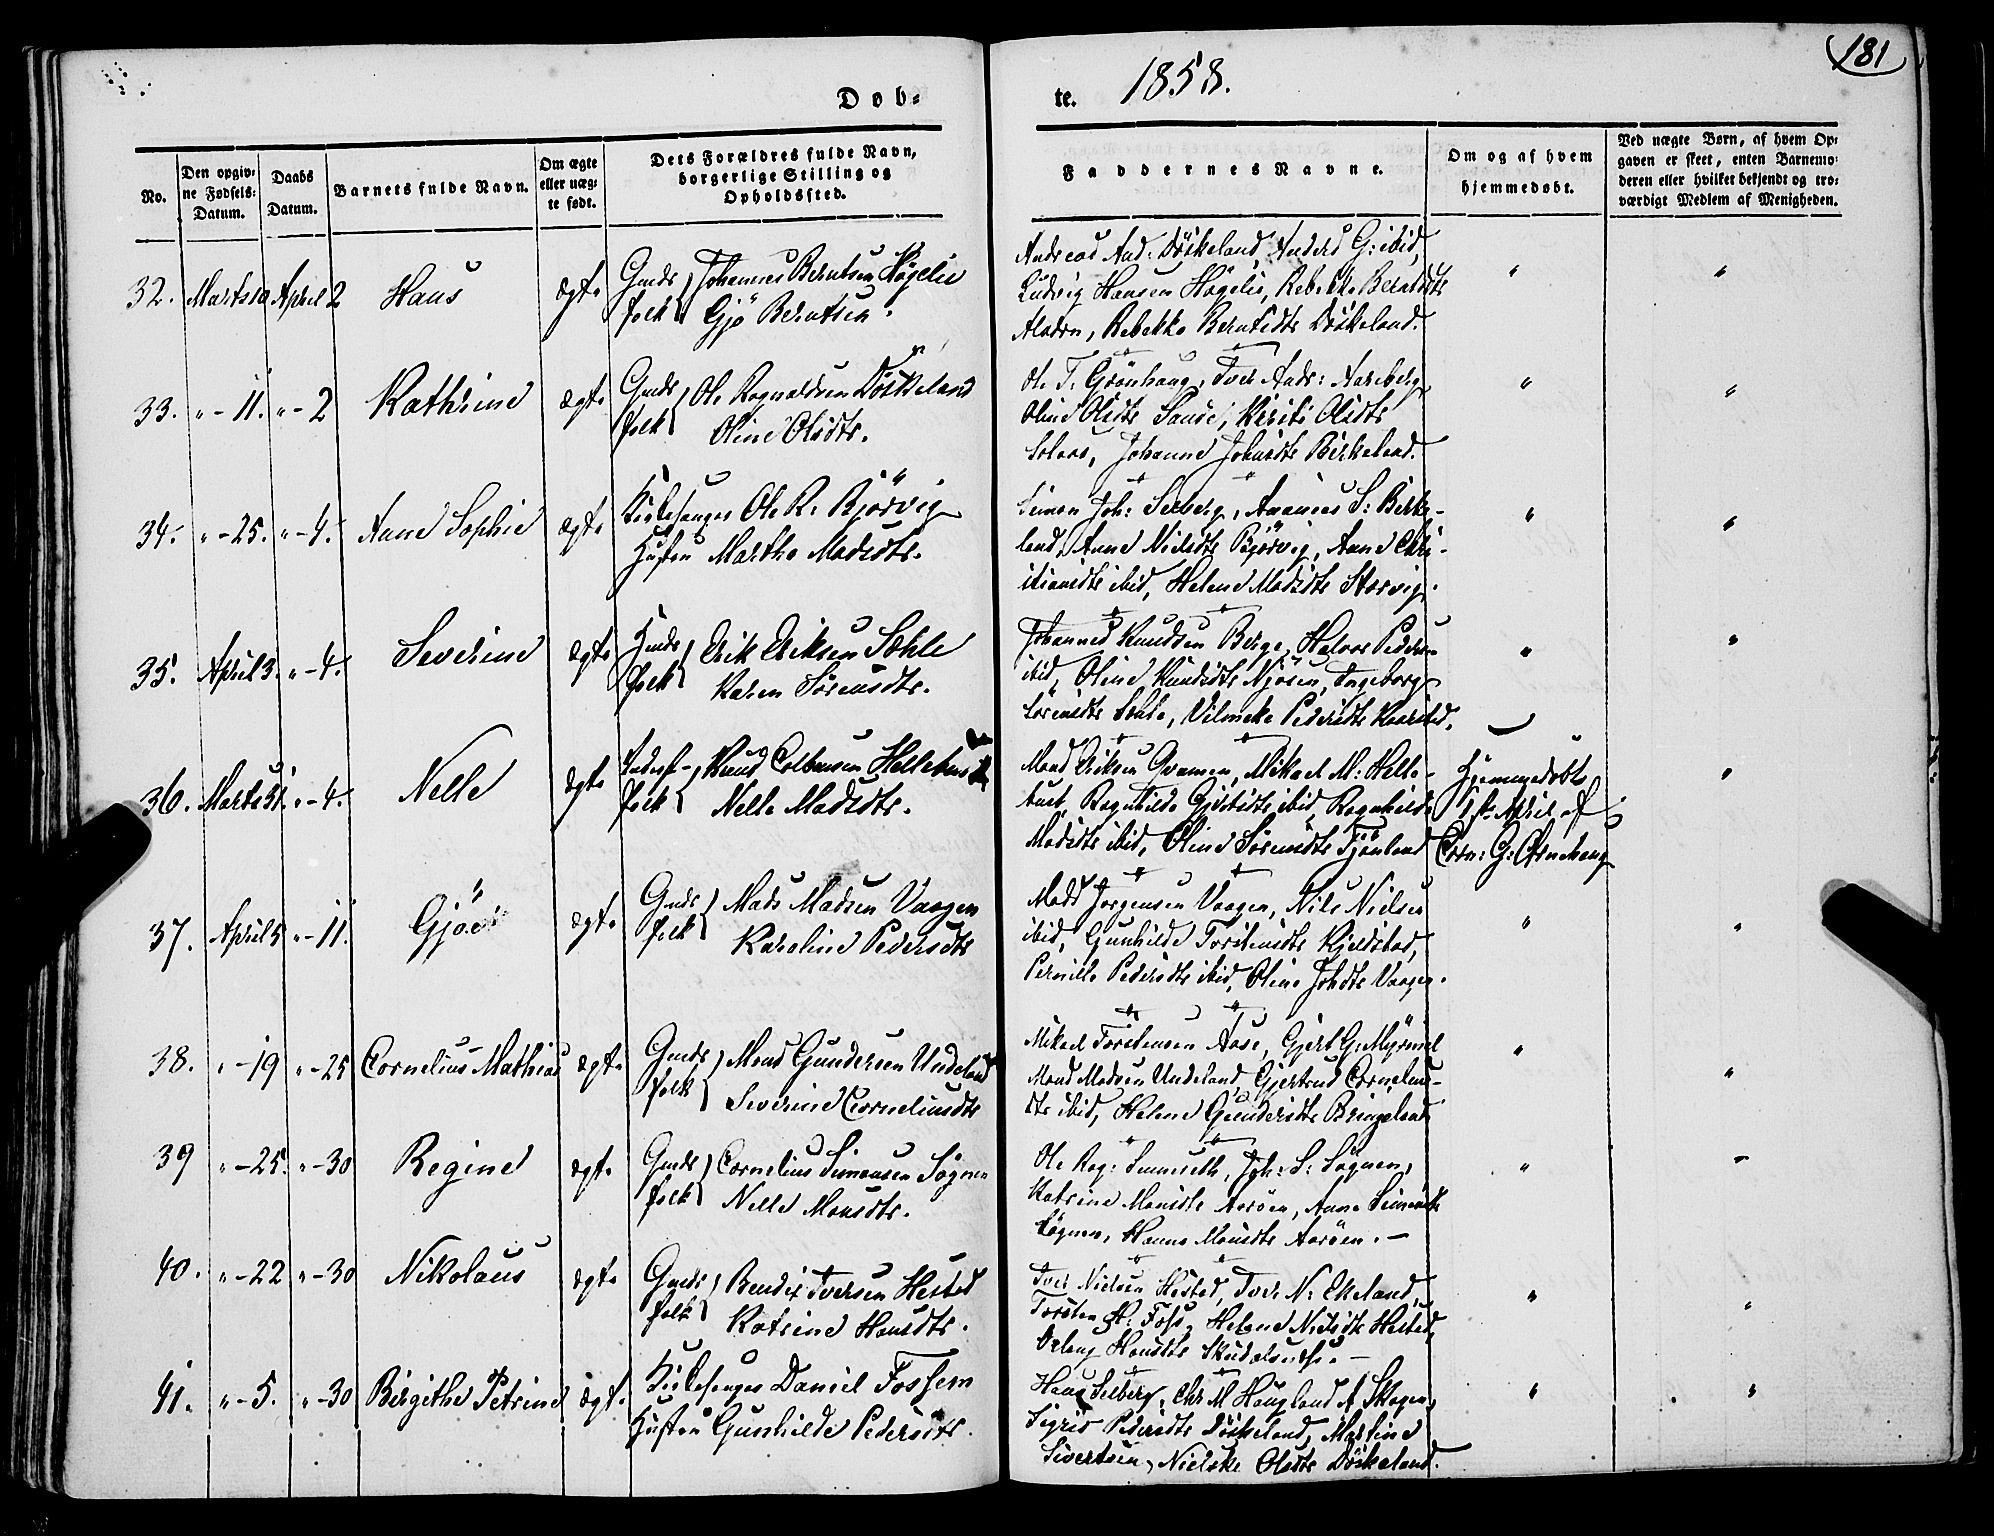 181
Døb= te. 1858.
No.
Den opgiv=
ne Fødsels=
Datum.
Daabs
Datum.
Barnets fulde Navn.
Om ægte
eller uæg=
te født.
Dets Forældres fulde Navn,
borgerlige Stilling og
Opholdssted.
Faddernes Navne.
Om og af hvem
hjemmedøbt.
Ved uægte Børn, af hvem Op=
gaven er skeet, enten Barnemo=
deren eller hvilket bekjendt og tro=
værdigt Medlem af Menigheden.
32. Marts 10 April 2 Hans ægte
Gmds folk Johannes Berntsen Høgelie
Gjö Berntsen.
Andreas And: Döskeland, Anders G: ibid,
Ludvig Hansen Högelie, Rebekke Berntsdtr
Rebekke Berntsdtr Döskeland.
" "
33. " - 11. " - 2 Kathrine ægte
Gmds folk Ole Rognaldsen Döskeland
Oline Olsdtr.
Ole T. Grönhaug, Iver Andr: Aareberg,
Oline Olsdtr Sande, Kirsti Olsdtr
Johanne Johansdtr Birkeland.
" "
34. " - 25. " - 4. Anne Sophie ægte
Kirkesanger Ole R. Björvig
Hustru Martha Madsdtr.
Simon Joh: Selberg, Ananias S: Birke-
land, Anne Nielsdtr Björvig, Anne Chri-
stiansdtr ibid, Helene Madsdtr Storvig.
" "
35. April 3. " - 4. Severine ægte
Gmds folk Erik Eriksen Sæhle
Karen Sörensdtr.
Johannes Knudsen Berge, Halvor Pedersen
ibid, Oline Knudsdtr Njösen, Ingeborg
Sörensdtr Sæhle, Vilmeke Pedersdtr Kaarstad.
" "
36. Marts 31. " - 4. Nelle ægte
folk Knud Colbensen Helletun
Nelle Madsdtr.
Mons Eriksen Qvamen, Mikael M: Helle-
ibid, Ragnhilde
Madsdtr ibid, Oline Sörensdtr Tjönland
Hjemmedöbt
1ste April af
Corn: G:
"
37. April 5 " - 11. Gjöe ægte
Gmds folk Mads Madsen Vaagen
Karoline Pedersdtr
Mads Jörgensen Vaagen, Nils Nielsen
ibid, Gunhilde Torstensdtr Kjelstad,
Pernille Pedersdtr ibid, Oline Johsdtr Vaagen.
" "
38. " - 19 " - 25 Cornelius Mathias ægte
Gmds folk Mons Gundersen Undeland
Severine Corneliusdtr
Mikael Torstensen Aase, Gjert G: Myrmel
Mons Madsen Undeland, Gjertrud Cornelius-
dtr ibid, Helene Gundersdtr Bringeland
" "
39 " - 25. " - 30 Regine ægte
Gmds folk Cornelius Simonsen Sögnen
Nelle Monsdtr.
Ole Rog: Joh: S: Sögnen,
Katrine Monsdtr Aaröen, Anne Simonsdtr
Sögnen, Hanne Monsdtr Aaröen. -
" -
40. " - 22 " - 30 Nikolaus ægte
Gmds folk Bendix Iversen Hestad
Katrine Hansdtr.
Iver Nielsen Hestad, Iver N: Ekeland,
Torsten H: Foss, Helene Nielsdtr Hestad,
Hansdtr
" "
41. " - 5. " - 30 Birgithe Petrine ægte
Kirkesanger Daniel Fossem
Hustru Gunhilde Pedersdtr.
Hans Selberg, Chr: M Haugland A Skogen,
Sigrid Pedersdtr Döskeland, Martine
Sivertsen, Nielske Olsdtr Döskeland.
" "